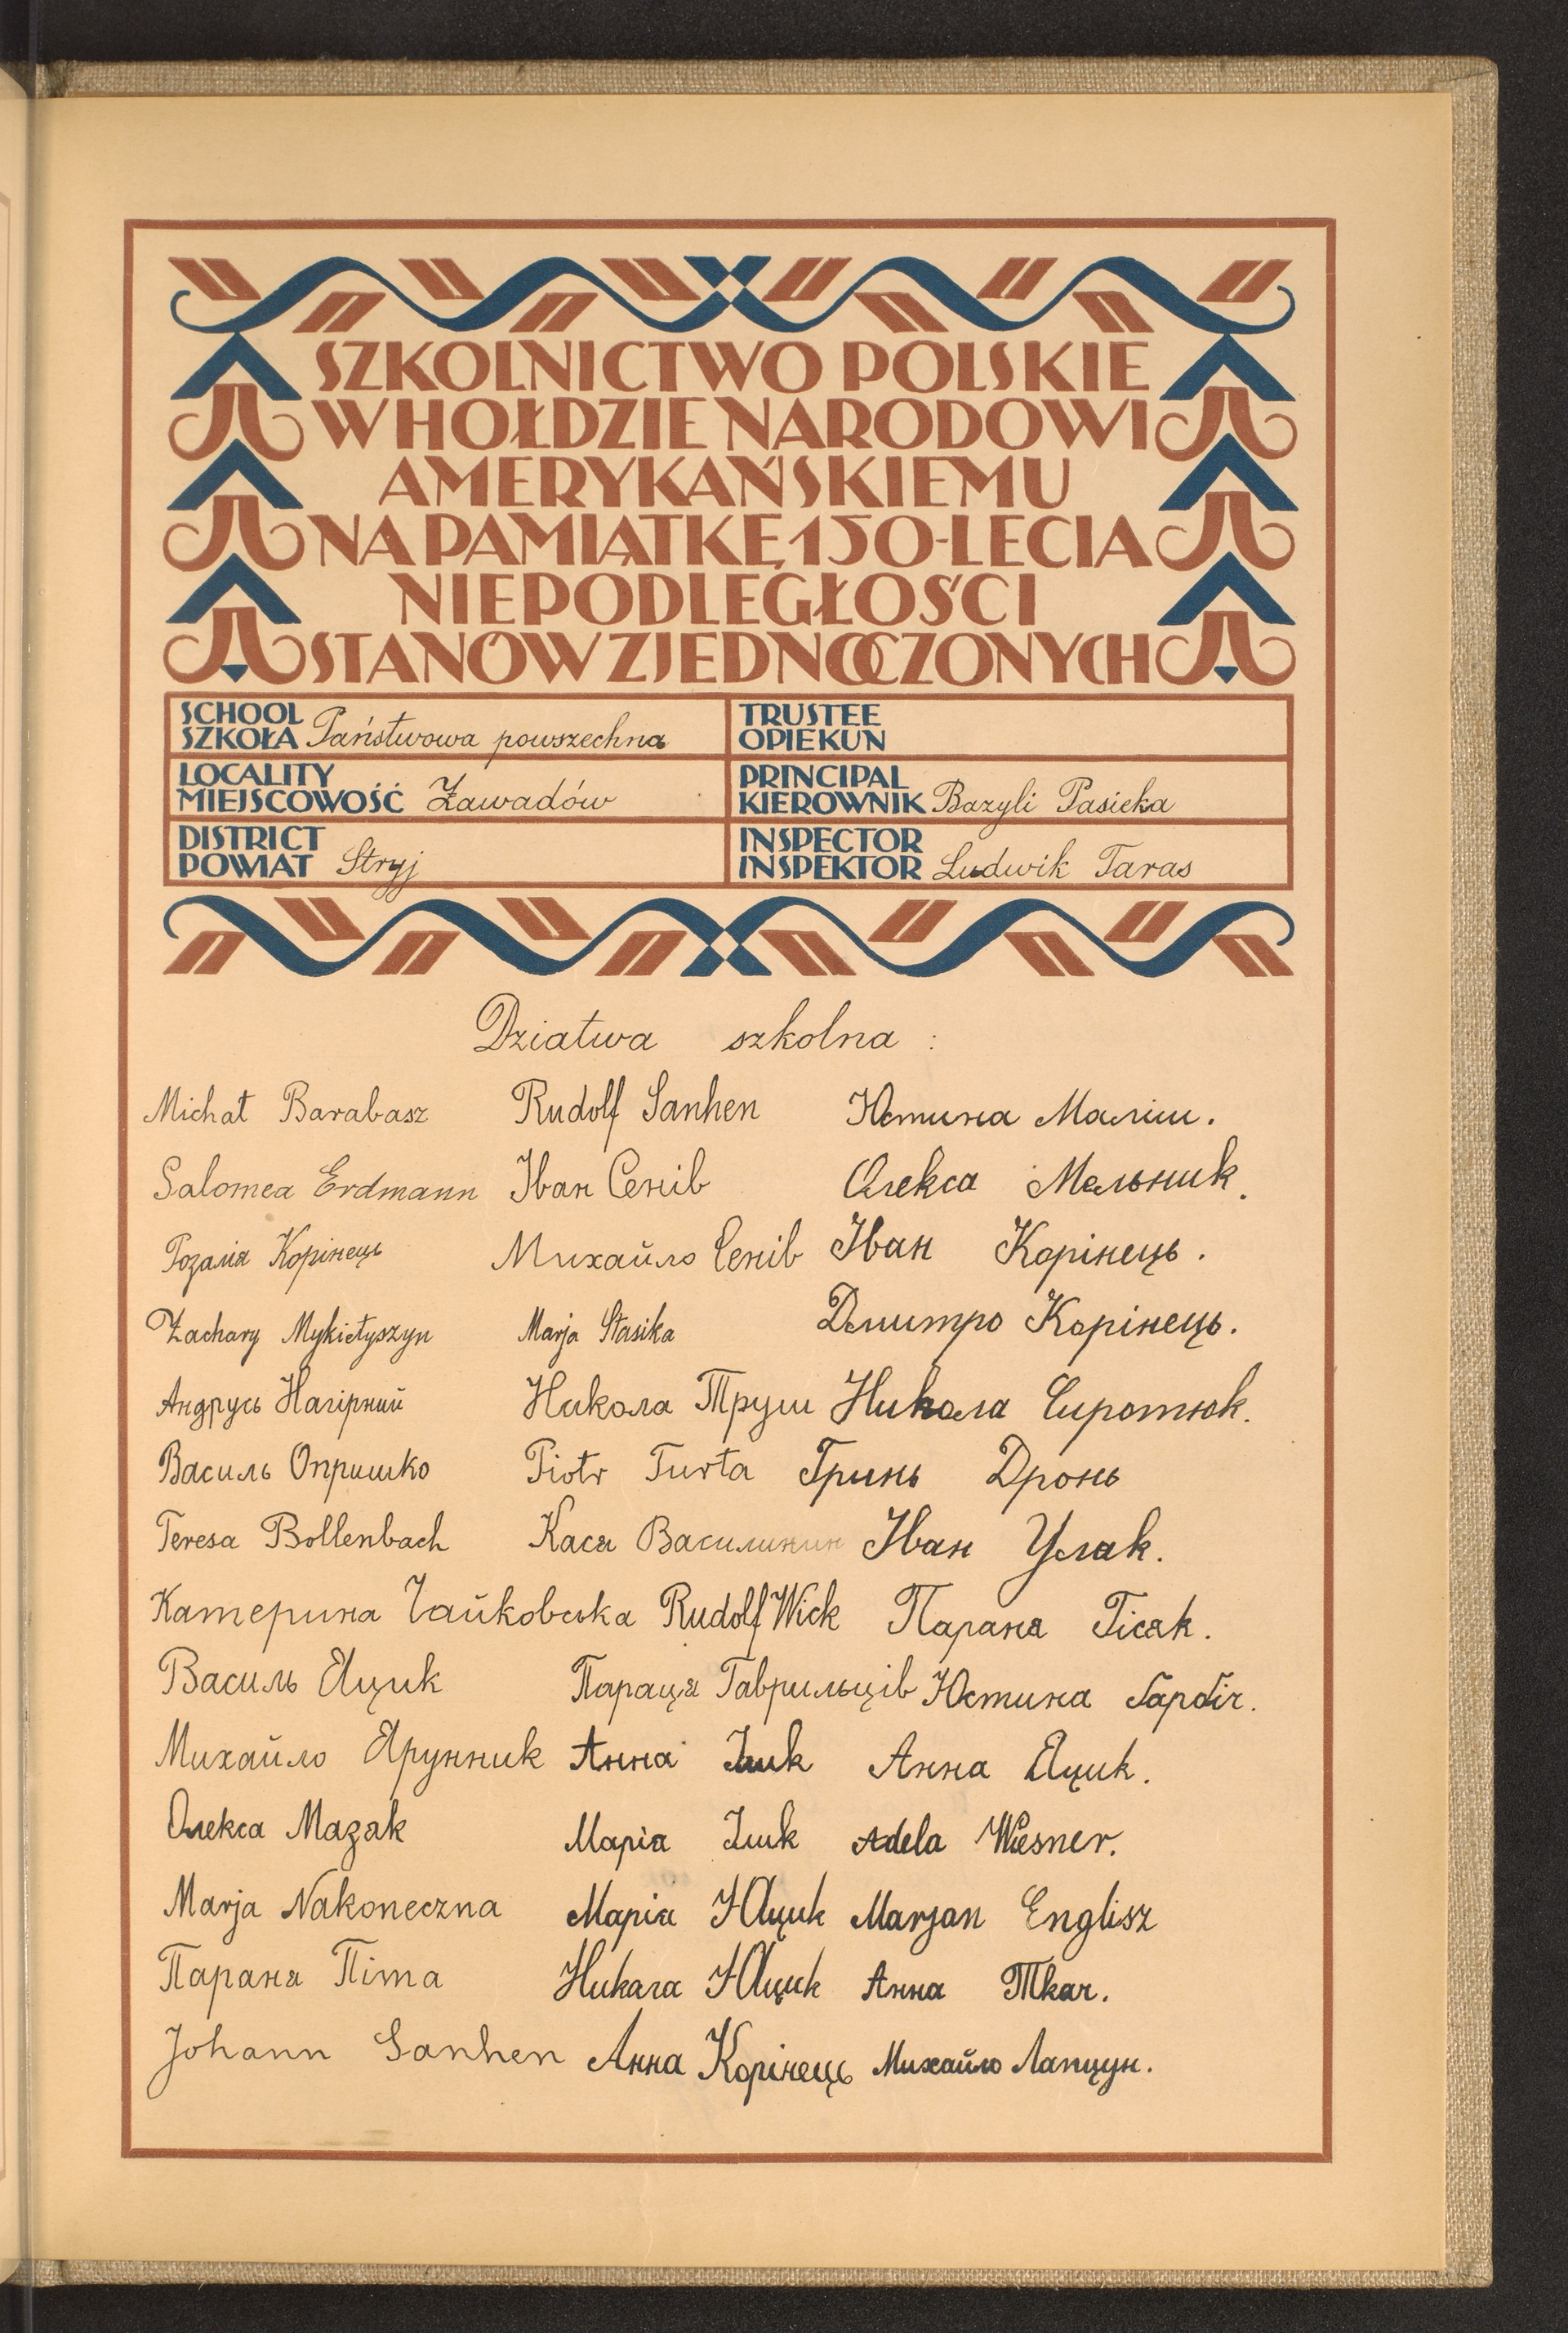 SZKOLNICTWO POLSKIE
W HOŁDZIE NARODOWI
AMERYKAŃSKIEMU
NA PAMIĄTKĘ 150-LECIA
NIEPODLEGŁOŚCI
STANÓW ZJEDNOCZONYCH
SCHOOL
SZKOŁA Państwowa powszechna
TRUSTEE
OPIEKUN
LOCALITY
MIEJSCOWOŚĆ Zawadów
PRINCIPAL
KIEROWNIK Bazyli Pasieka
DISTRICT
POWIAT Stryj
INSPECTOR
INSPEKTOR Ludwik Taras
Dziatwa szkolna :
Michał Barabasz Rudolf Sanhen Юстина Маліш.
Salomea Erdmann Іван Сенів Олекса Мельник.
Розалія Корінець Михайло Сенів Іван Корінець.
Zachary Mykietyszyn Marja Stasika Дмитро Корінець.
Андрусь Нагірний Никола Труш Никола Сиротюк.
Василь Опришко Piotr Turta Гринь Дронь
Teresa Bollenbach Кася Василинин Іван Услак.
Катерина Чайковська Rudolf Wick Параня Гісяк.
Василь Яцик Параця Гаврильців Юстина
Михайло Ярунник Анна Ілик Анна Яцик.
Олекса Мазак Марія Ілик Adela Wiesner.
Marja Nakoneczna Марія Яцик Marjan Englisz
Параня Піта Никола Яцик Анна Ткач.
Johann Sanhen Анна Корінець Михайло Лапцун.